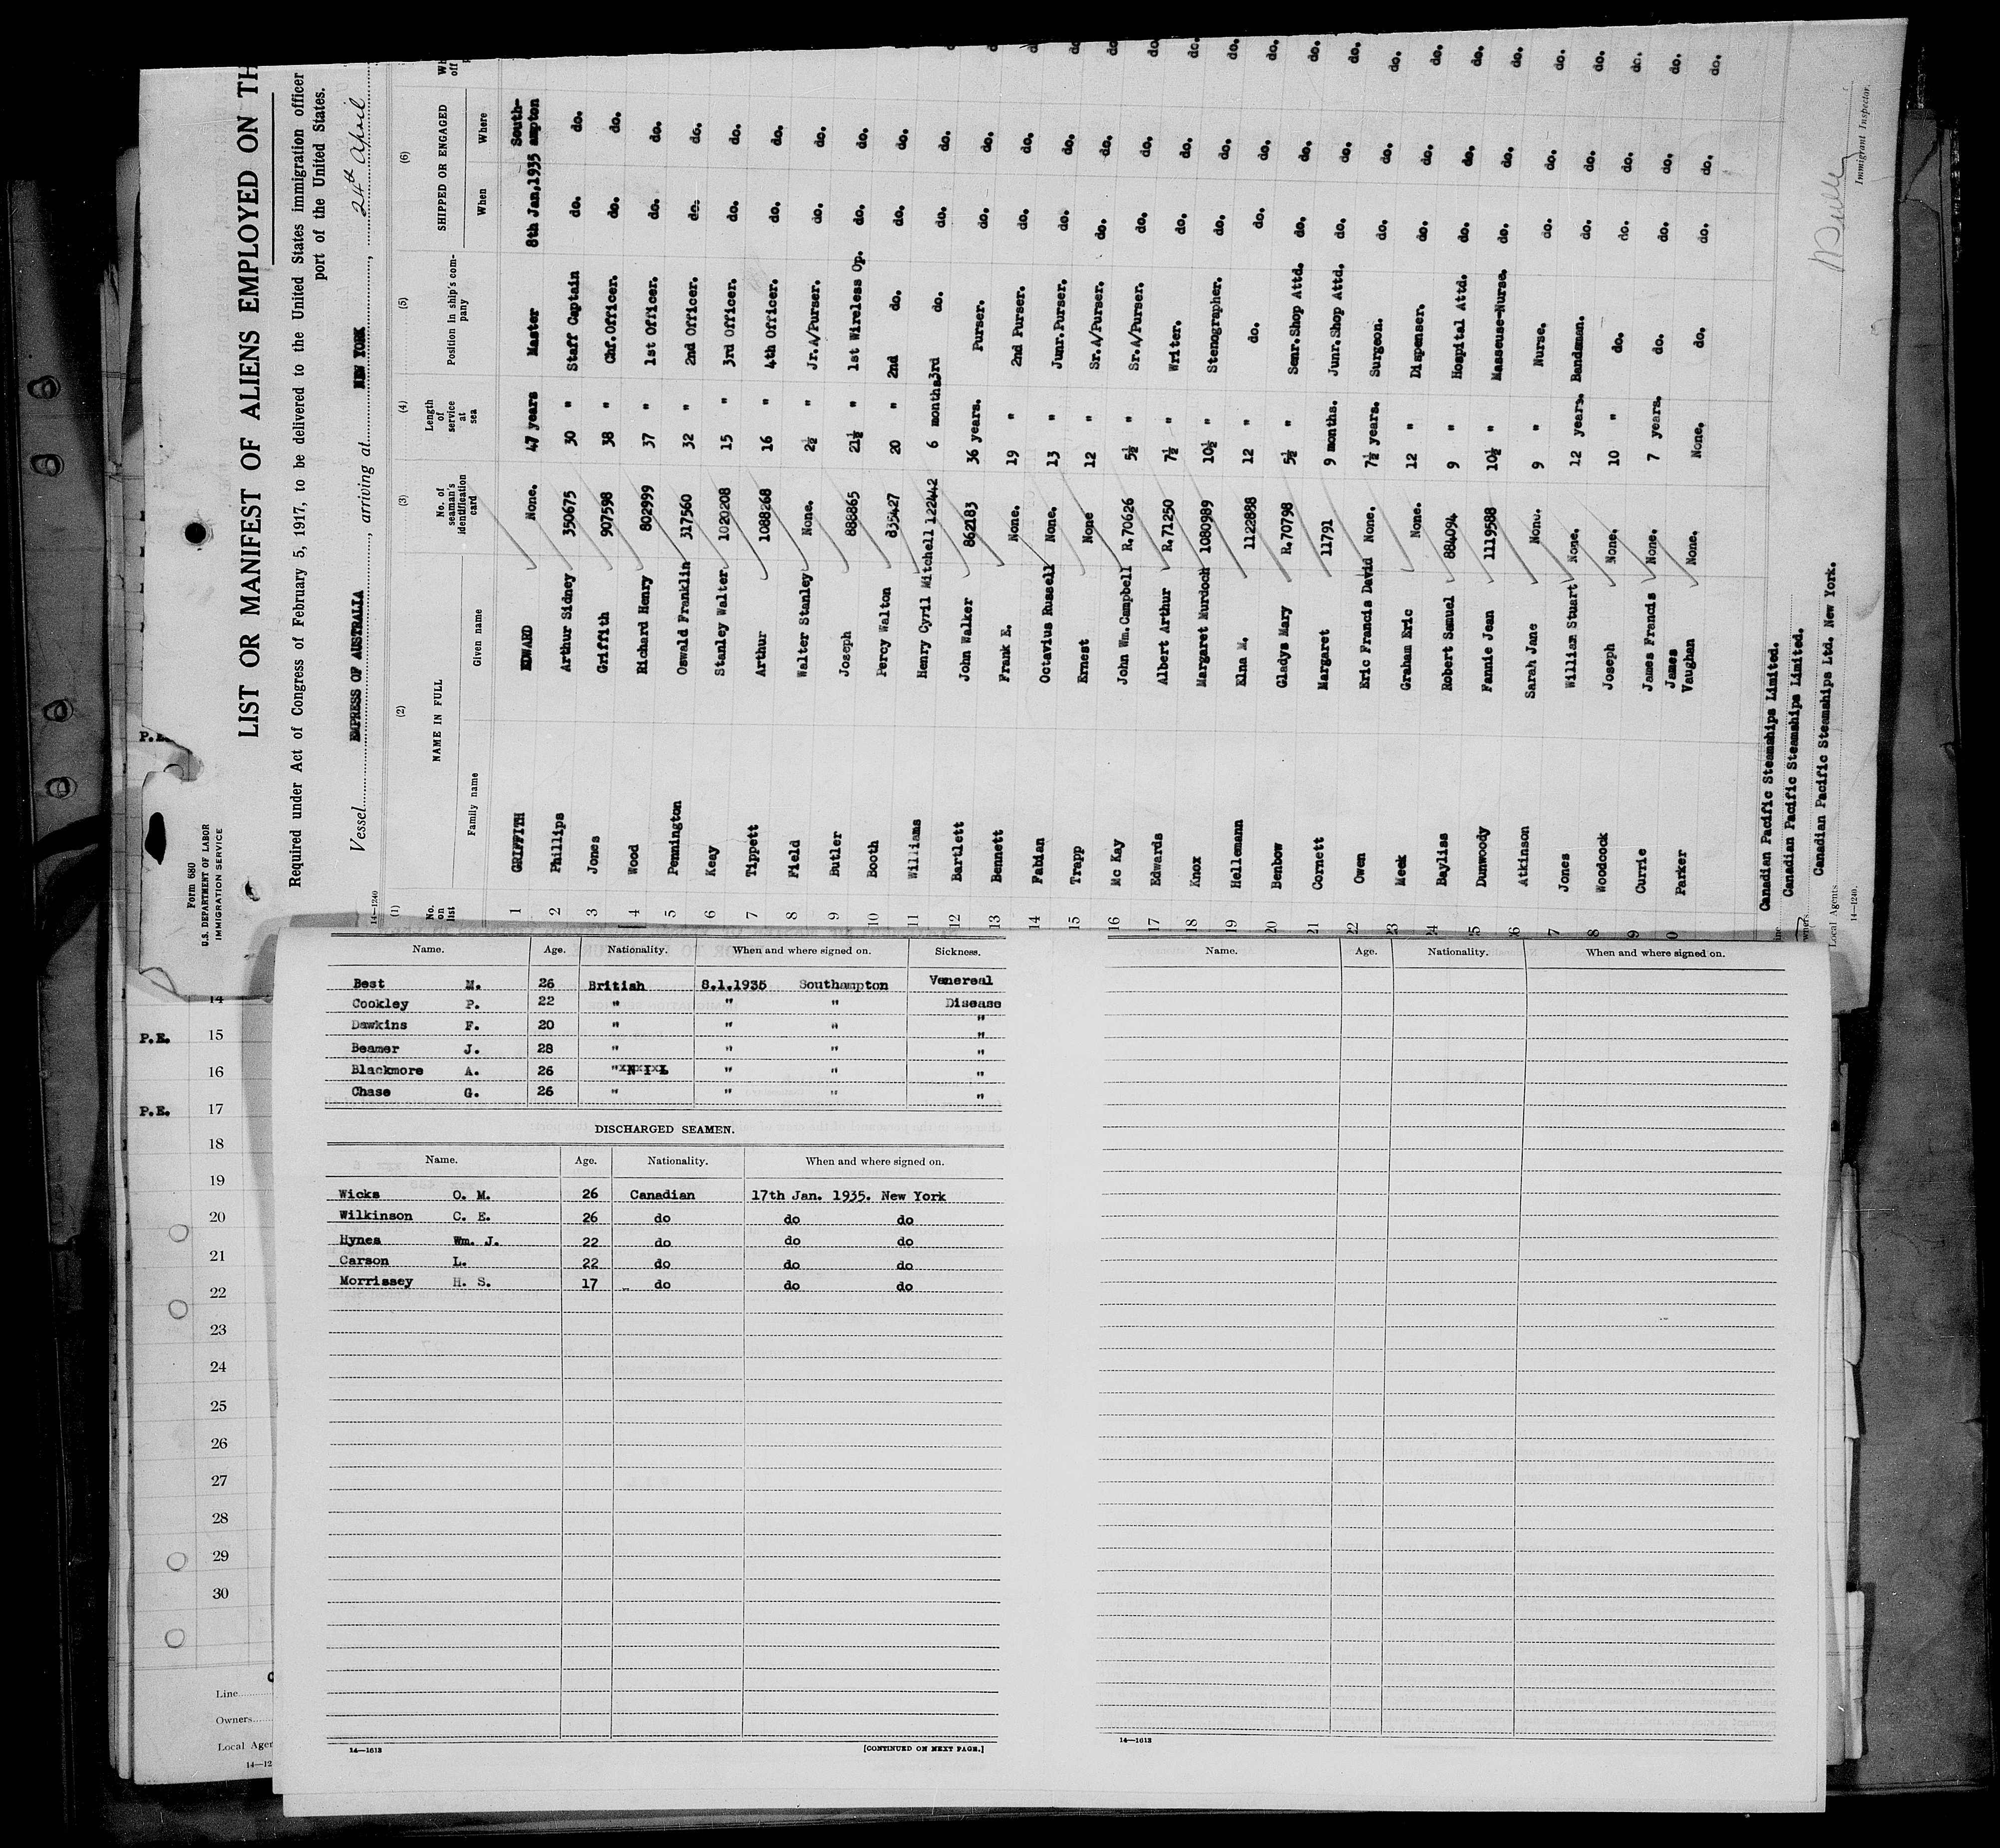 Form 680
U.S. DEPARTMENT OF LABOR
IMMIGRATION SERVICE
LIST OR MANIFEST OF ALIENS EMPLOYED ON TH
Required under Act of Congress of February 5, 1917, to be delivered to the United States immigration officer
port of the United States.
Vessel EMPRESS OF AUSTRALIA, arriving at NEW YORK, 24th April
14—1240
(1) (2) (3) (4) (5) (6)
No. on list NAME IN FULL No. of seaman's identification card Length of service at sea Position in ship's company SHIPPED OR ENGAGED
Family name Given name When Where
1 GRIFFITH EDWARD None. 47 years Master 8th Jan,1935 South-ampton
2 Phillips Arthur Sidney 350675 30 " Staff Captain do. do. do.
3 Jones Griffith 907598 38 " Chf.Officer. do. do.
4 Wood Richard Henry 802999 37 " 1st Officer. do. do.
5 Pennington Oswald Franklin 317560 32 " 2nd Officer. do. do.
6 Keay Stanley Walter 1020208 15 " 3rd Officer. do. do.
7 Tippett Arthur 1088268 16 " 4th Officer. do. do.
8 Field Walter Stanley None. 2½ " Jr.A/Purser. do. do.
9 Butler Joseph 888865 21½ " 1st Wireless Op. do. do.
10 Booth Percy Walton 835427 20 " 2nd do. do. do.
11 Williams Henry Cyril Mitchell 122442 6 months 3rd do. do. do.
12 Bartlett John Walker 862183 36 years. Purser. do. do. do.
13 Bennett Frank E. None. 19 " 2nd Purser. do. do. do.
14 Fabian Octavius Russell None. 13 " Junr.Purser. do. do. do.
15 Trapp Ernest None 12 " Sr.A/Purser. do. do. do.
16 Mc Kay John Wm.Campbell R.70626 5½ " Sr.A/Purser. do. do. do.
17 Edwards Albert Arthur R.71250 7½ " Writer. do. do. do.
18 Knox Margaret Murdoch 1080989 10½ " Stenographer. do. do. do.
19 Hellemann Elna M. 1122888 12 " do. do. do. do.
20 Benbow Gladys Mary R.70798 5½ " Senr.Shop Attd. do. do. do.
21 Cornett Margaret 11791 9 months. Junr.Shop Attd. do. do. do.
22 Owen Eric Francis David None. 7½ years. Surgeon. do. do. do.
23 Meek Graham Eric None. 12 " Dispenser. do. do. do.
24 Bayliss Robert Samuel 884094 9 " Hospital Attd. do. do. do.
5 Dunwoody Fannie Jean 1119588 10½ " Masseuse-Nurse. do. do. do.
6 Atkinson Sarah Jane None. 9 " Nurse. do. do. do.
7 Jones William Stuart None. 12 years. Bandsman. do. do. do.
8 Woodcock Joseph None. 10 " do. do. do. do.
9 Currie James Francis None. 7 years. do. do. do. do.
0 Parker James Vaughan None. None. do. do. do. do.
Canadian Pacific Steamships Limited.
Canadian Pacific Steamships Limited.
Local Agents Canadian Pacific Steamships Ltd. New York.
14—1240.
Immigrant Inspector.
P.E.
14
P.E. 15
16
P.E. 17
18
19
20
21
22
23
24
25
26
27
28
29
30
Line
Owners
Local Agen
14—12
Name. Age. Nationality. When and where signed on. Sickness.
Best M. 26 British 8.1.1935 Southampton Venereal
Cookley P. 22 " " " Disease
Dawkins F. 20 " " " "
Beamer J. 28 " " " "
Blackmore A. 26 " " " "
Chase G. 26 " " " "
DISCHARGED SEAMEN.
Name. Age. Nationality. When and where signed on.
Wicks O. M. 26 Canadian 17th Jan. 1935. New York
Wilkinson C. E. 26 do do do
Hynes Wm. J. 22 do do do
Carson L. 22 do do do
Morrissey H. S. 17 do do do
14—1613 [CONTINUED ON NEXT PAGE.]
Name. Age. Nationality. When and where signed on.
14—1613